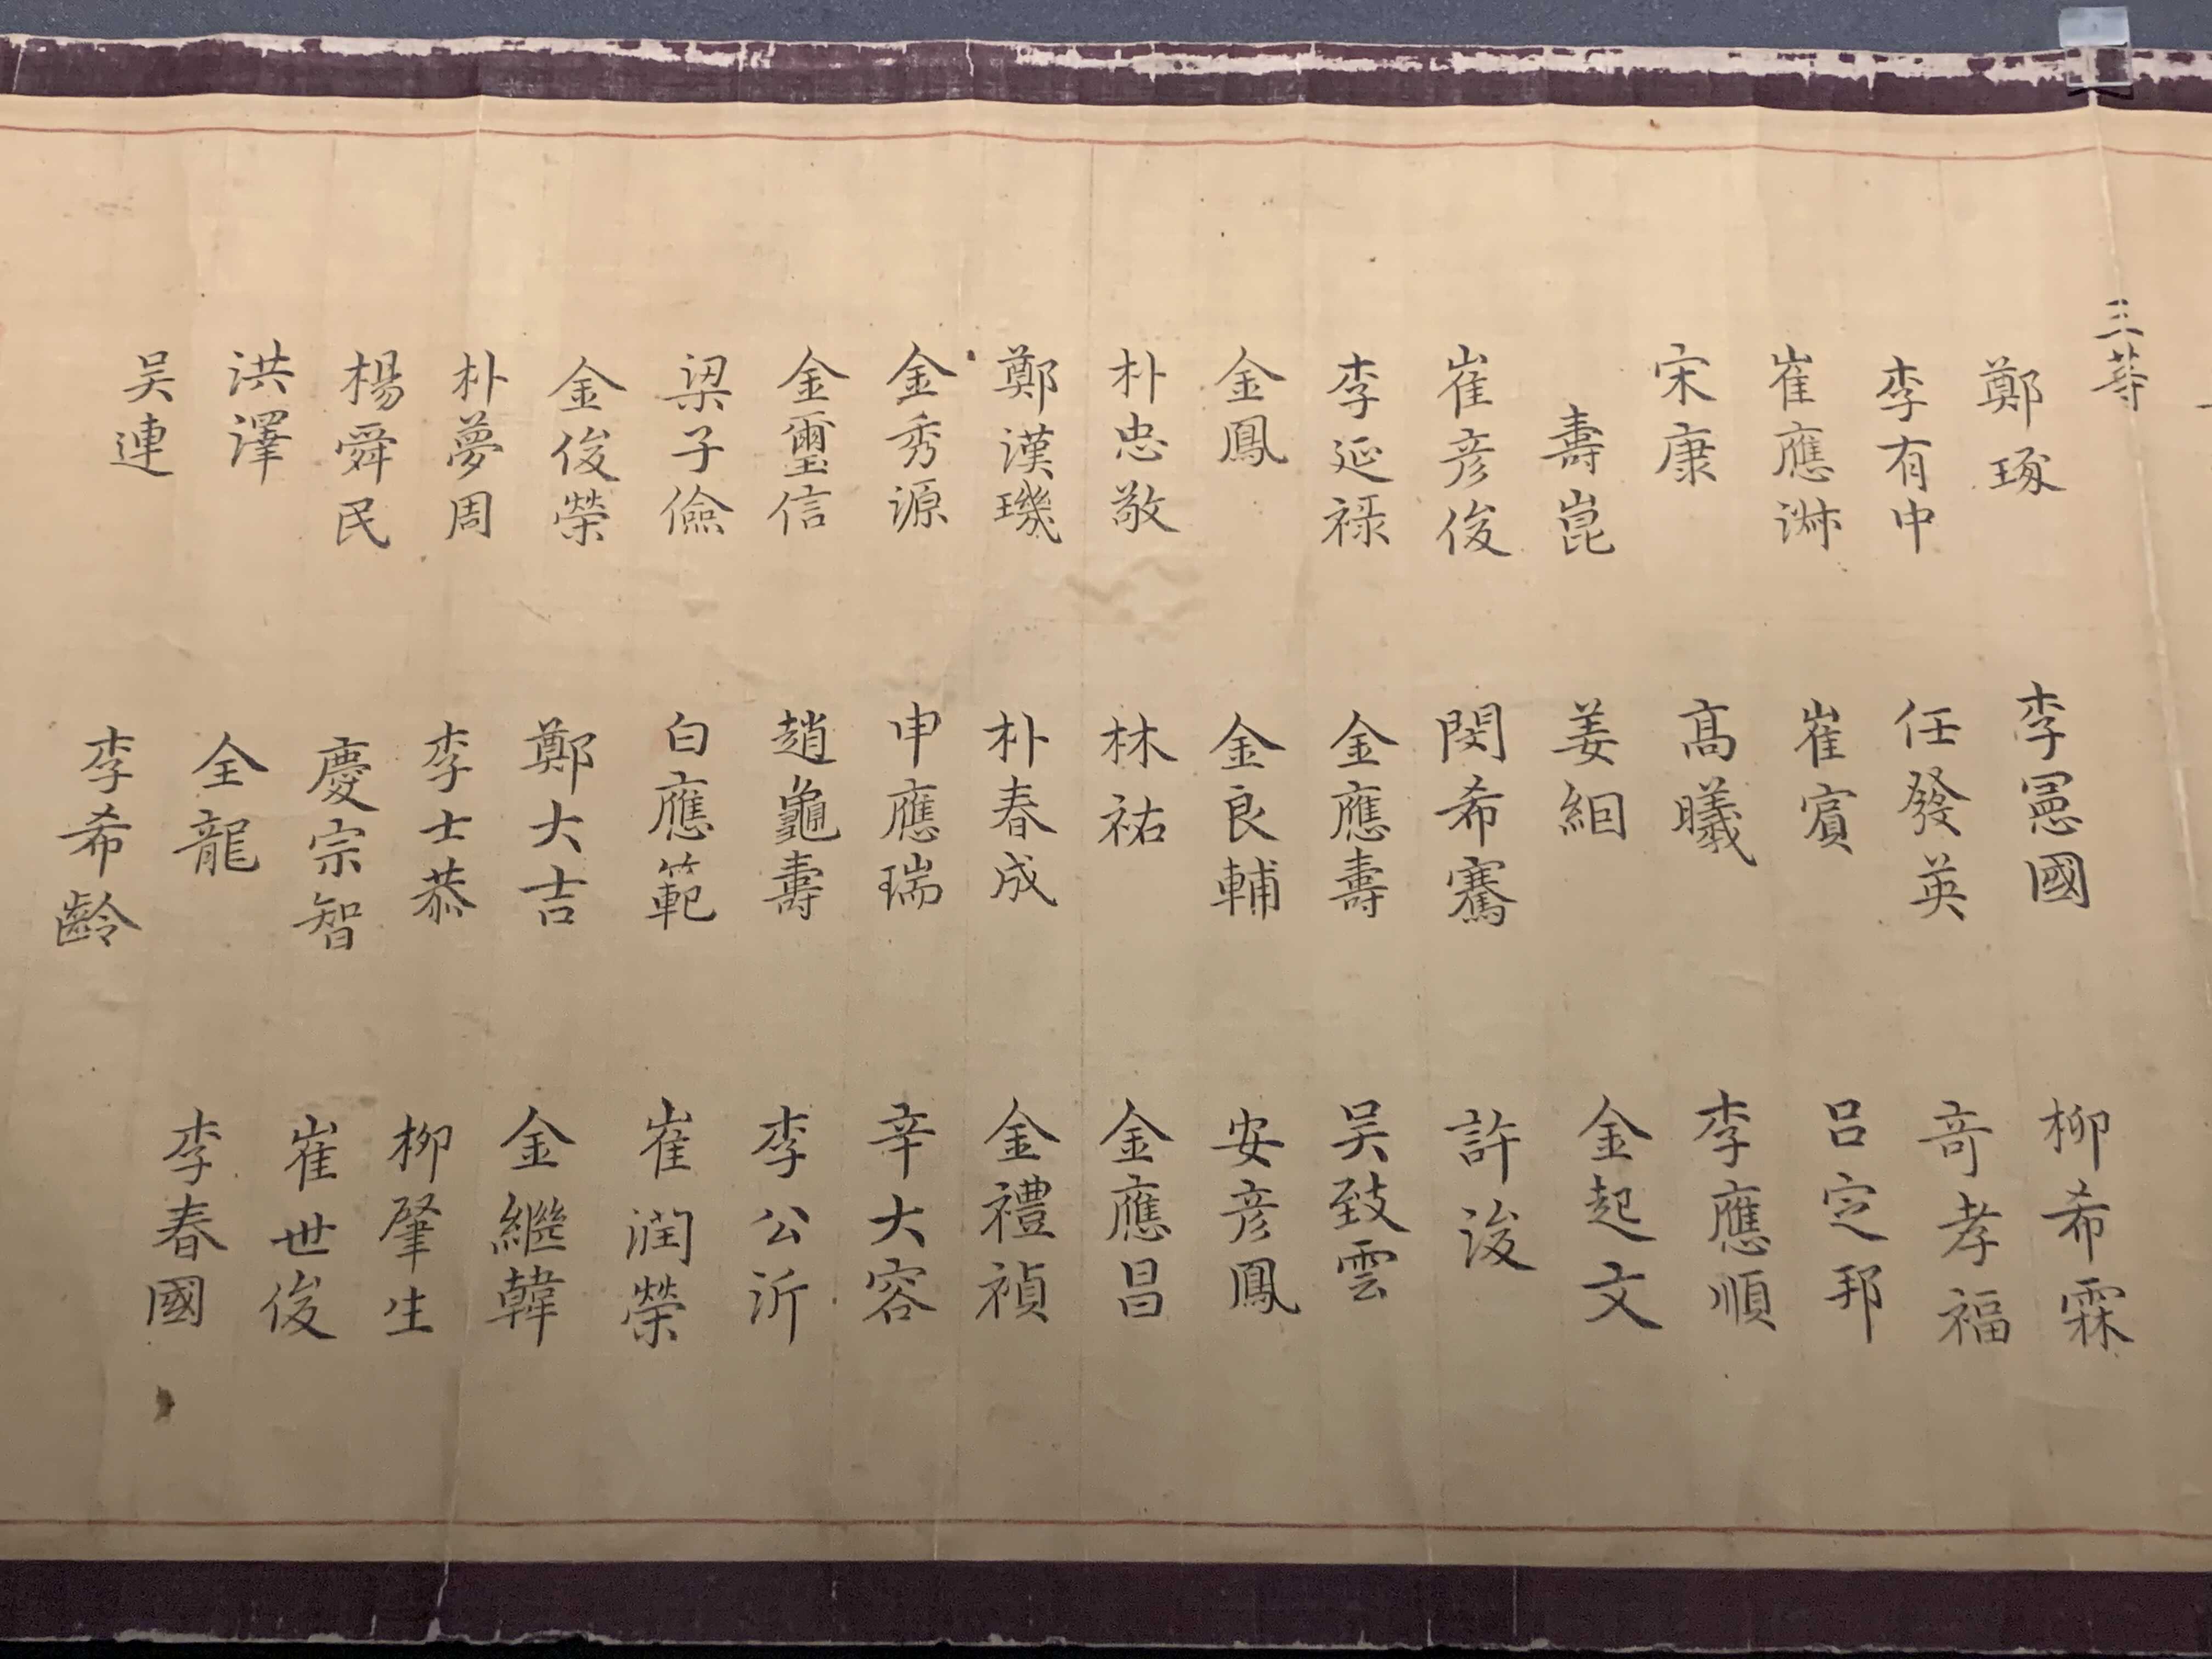 三等
鄭琢
李憲國
柳希霖
李有中
任發英
奇孝福
崔應淋
崔賓
呂定邦
宋康
高曦
李應順
壽崑
姜絪
金起文
崔彦俊
閔希騫
許浚
李延祿
金應壽
吴致雲
金鳳
金良輔
安彦鳳
朴忠敬
林祐
金應昌
鄭漢璣
朴春成
金禮禎
金秀源
申應瑞
辛大容
金璽信
趙龜壽
李公沂
梁子儉
白應範
崔潤榮
金俊榮
鄭大吉
金繼韓
朴夢周
李士恭
柳肇生
楊舜民
慶宗智
崔世俊
洪澤
全龍
李春國
吴連
李希齡